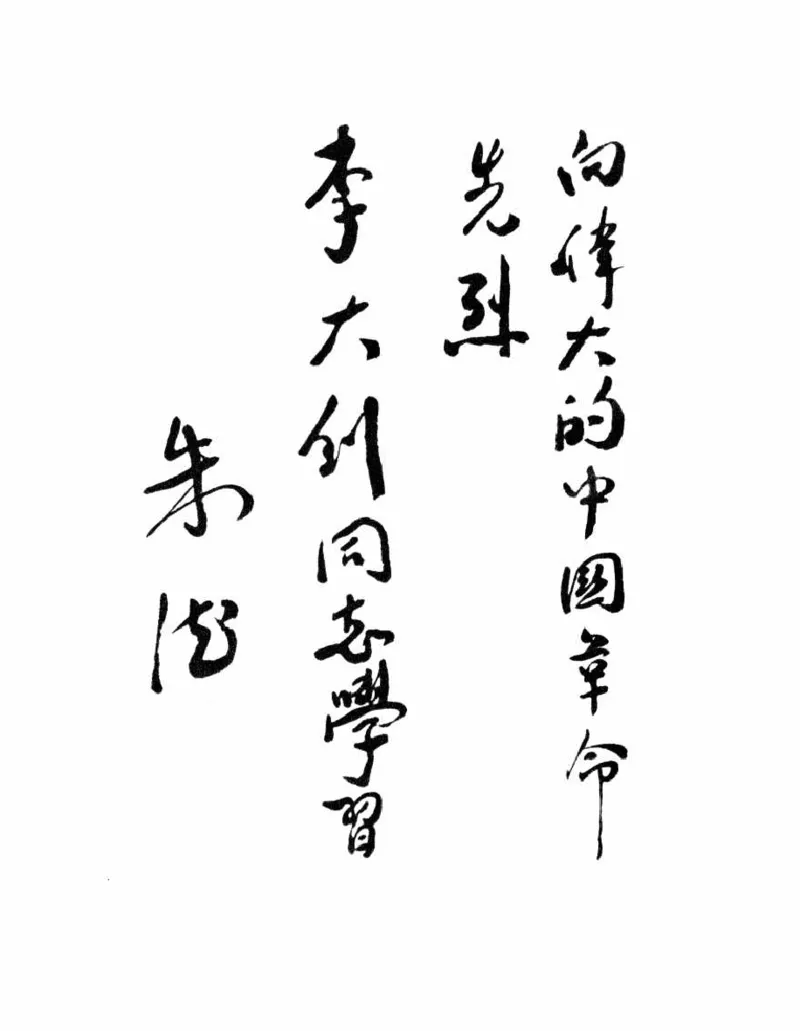 向偉大的中國革命
先烈
李大釗同志學習
朱德